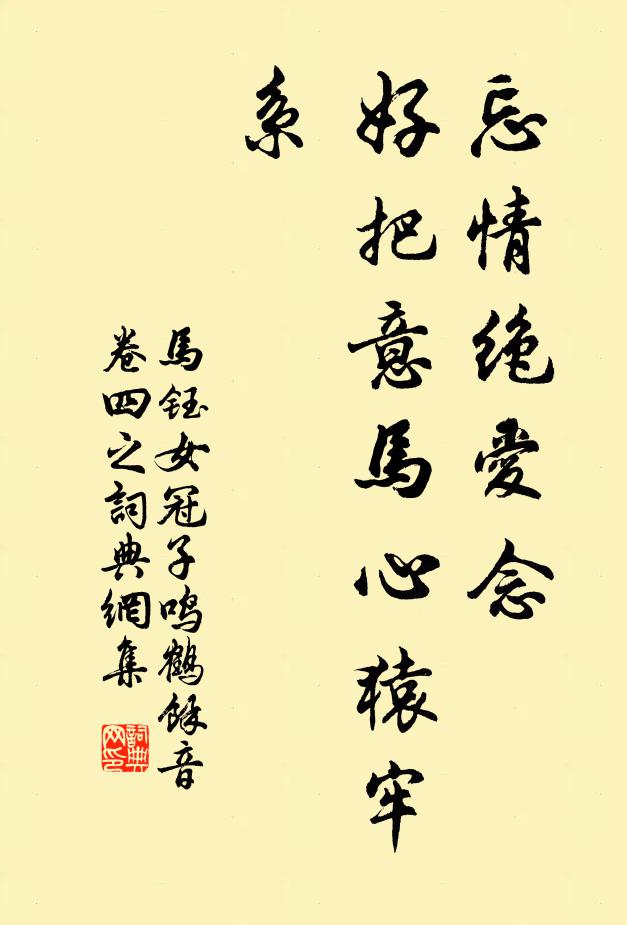 忘情絶愛念
好把意馬心猿牢
系
馬鈺女冠子鳴鶴餘音
卷四之詞典網集
詞典
网印